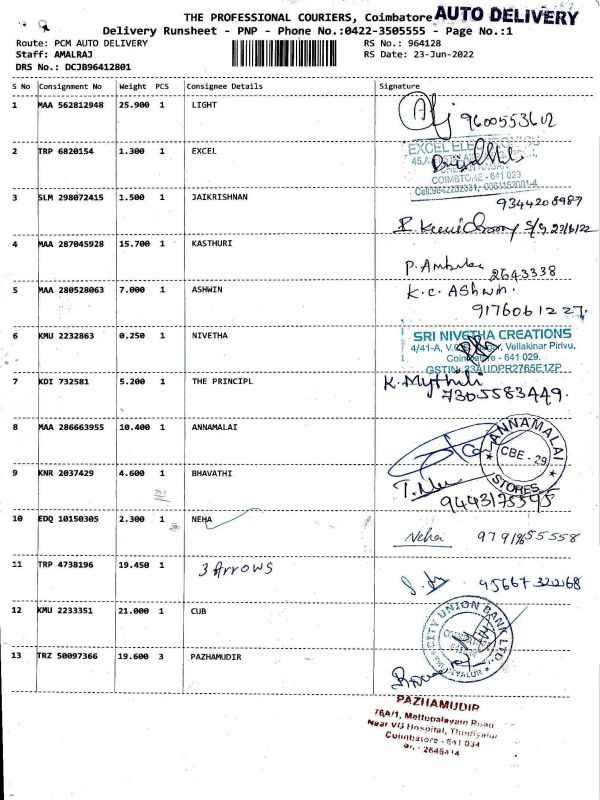 THE PROFESSIONAL COURIERS, Coimbatore AUTO DELIVERY
Delivery Runsheet - PNP - Phone No.:0422-3505555 - Page No.:1
Route: PCM AUTO DELIVERY RS No.: 964128
Staff: AMALRAJ RS Date: 23-Jun-2022
DRS No.: DCJB96412801
S No Consignment No Weight PCS Consignee Details Signature
1 MAA 562812948 25.900 1 LIGHT
9600553612
2 TRP 6820154 1.300 1 EXCEL
EXCEL
COIMBTORE - 641 023
3 SLM 298072415 1.500 1 JAIKRISHNAN
9344208987
23/6/22
4 MAA 287045928 15.700 1 KASTHURI
P. Ambika 2643338
5 MAA 280528063 7.000 1 ASHWIN K.C. Ashwin.
9176061227.
6 KMU 2232863 0.250 1 NIVETHA SRI NIVETHA CREATIONS
4/41-A, Vellakinar Pirivu,
Coimbatore - 641 029.
GSTIN: 33AUDPR2765E1ZP
7 KDI 732581 5.200 1 THE PRINCIPL K. Mythili
7305583449.
8 MAA 286663955 10.400 1 ANNAMALAI
ANNAMALAI
CBE - 29
STORES
9 KNR 2037429 4.600 1 BHAVATHI
9443175595
10 EDQ 10150305 2.300 1 NEHA Neha 9791855558
11 TRP 4738196 19.450 1 3 Arrows
4566732268
12 KMU 2233351 21.000 1 CUB
CITY UNION BANK LTD.
13 TRZ 50097366 19.600 3 PAZHAMUDIR
PAZHAMUDIR
76A/1, Mettupalayam Road
Near VG Hospital, Thudiyalur
Coimbatore - 641 034